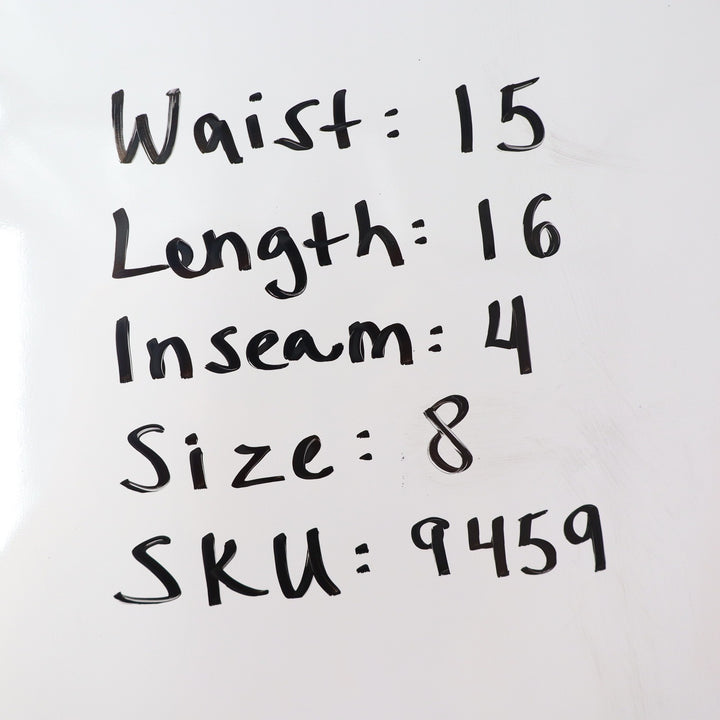 Waist: 15
Length: 16
Inseam: 4
Size: 8
SKU: 9459